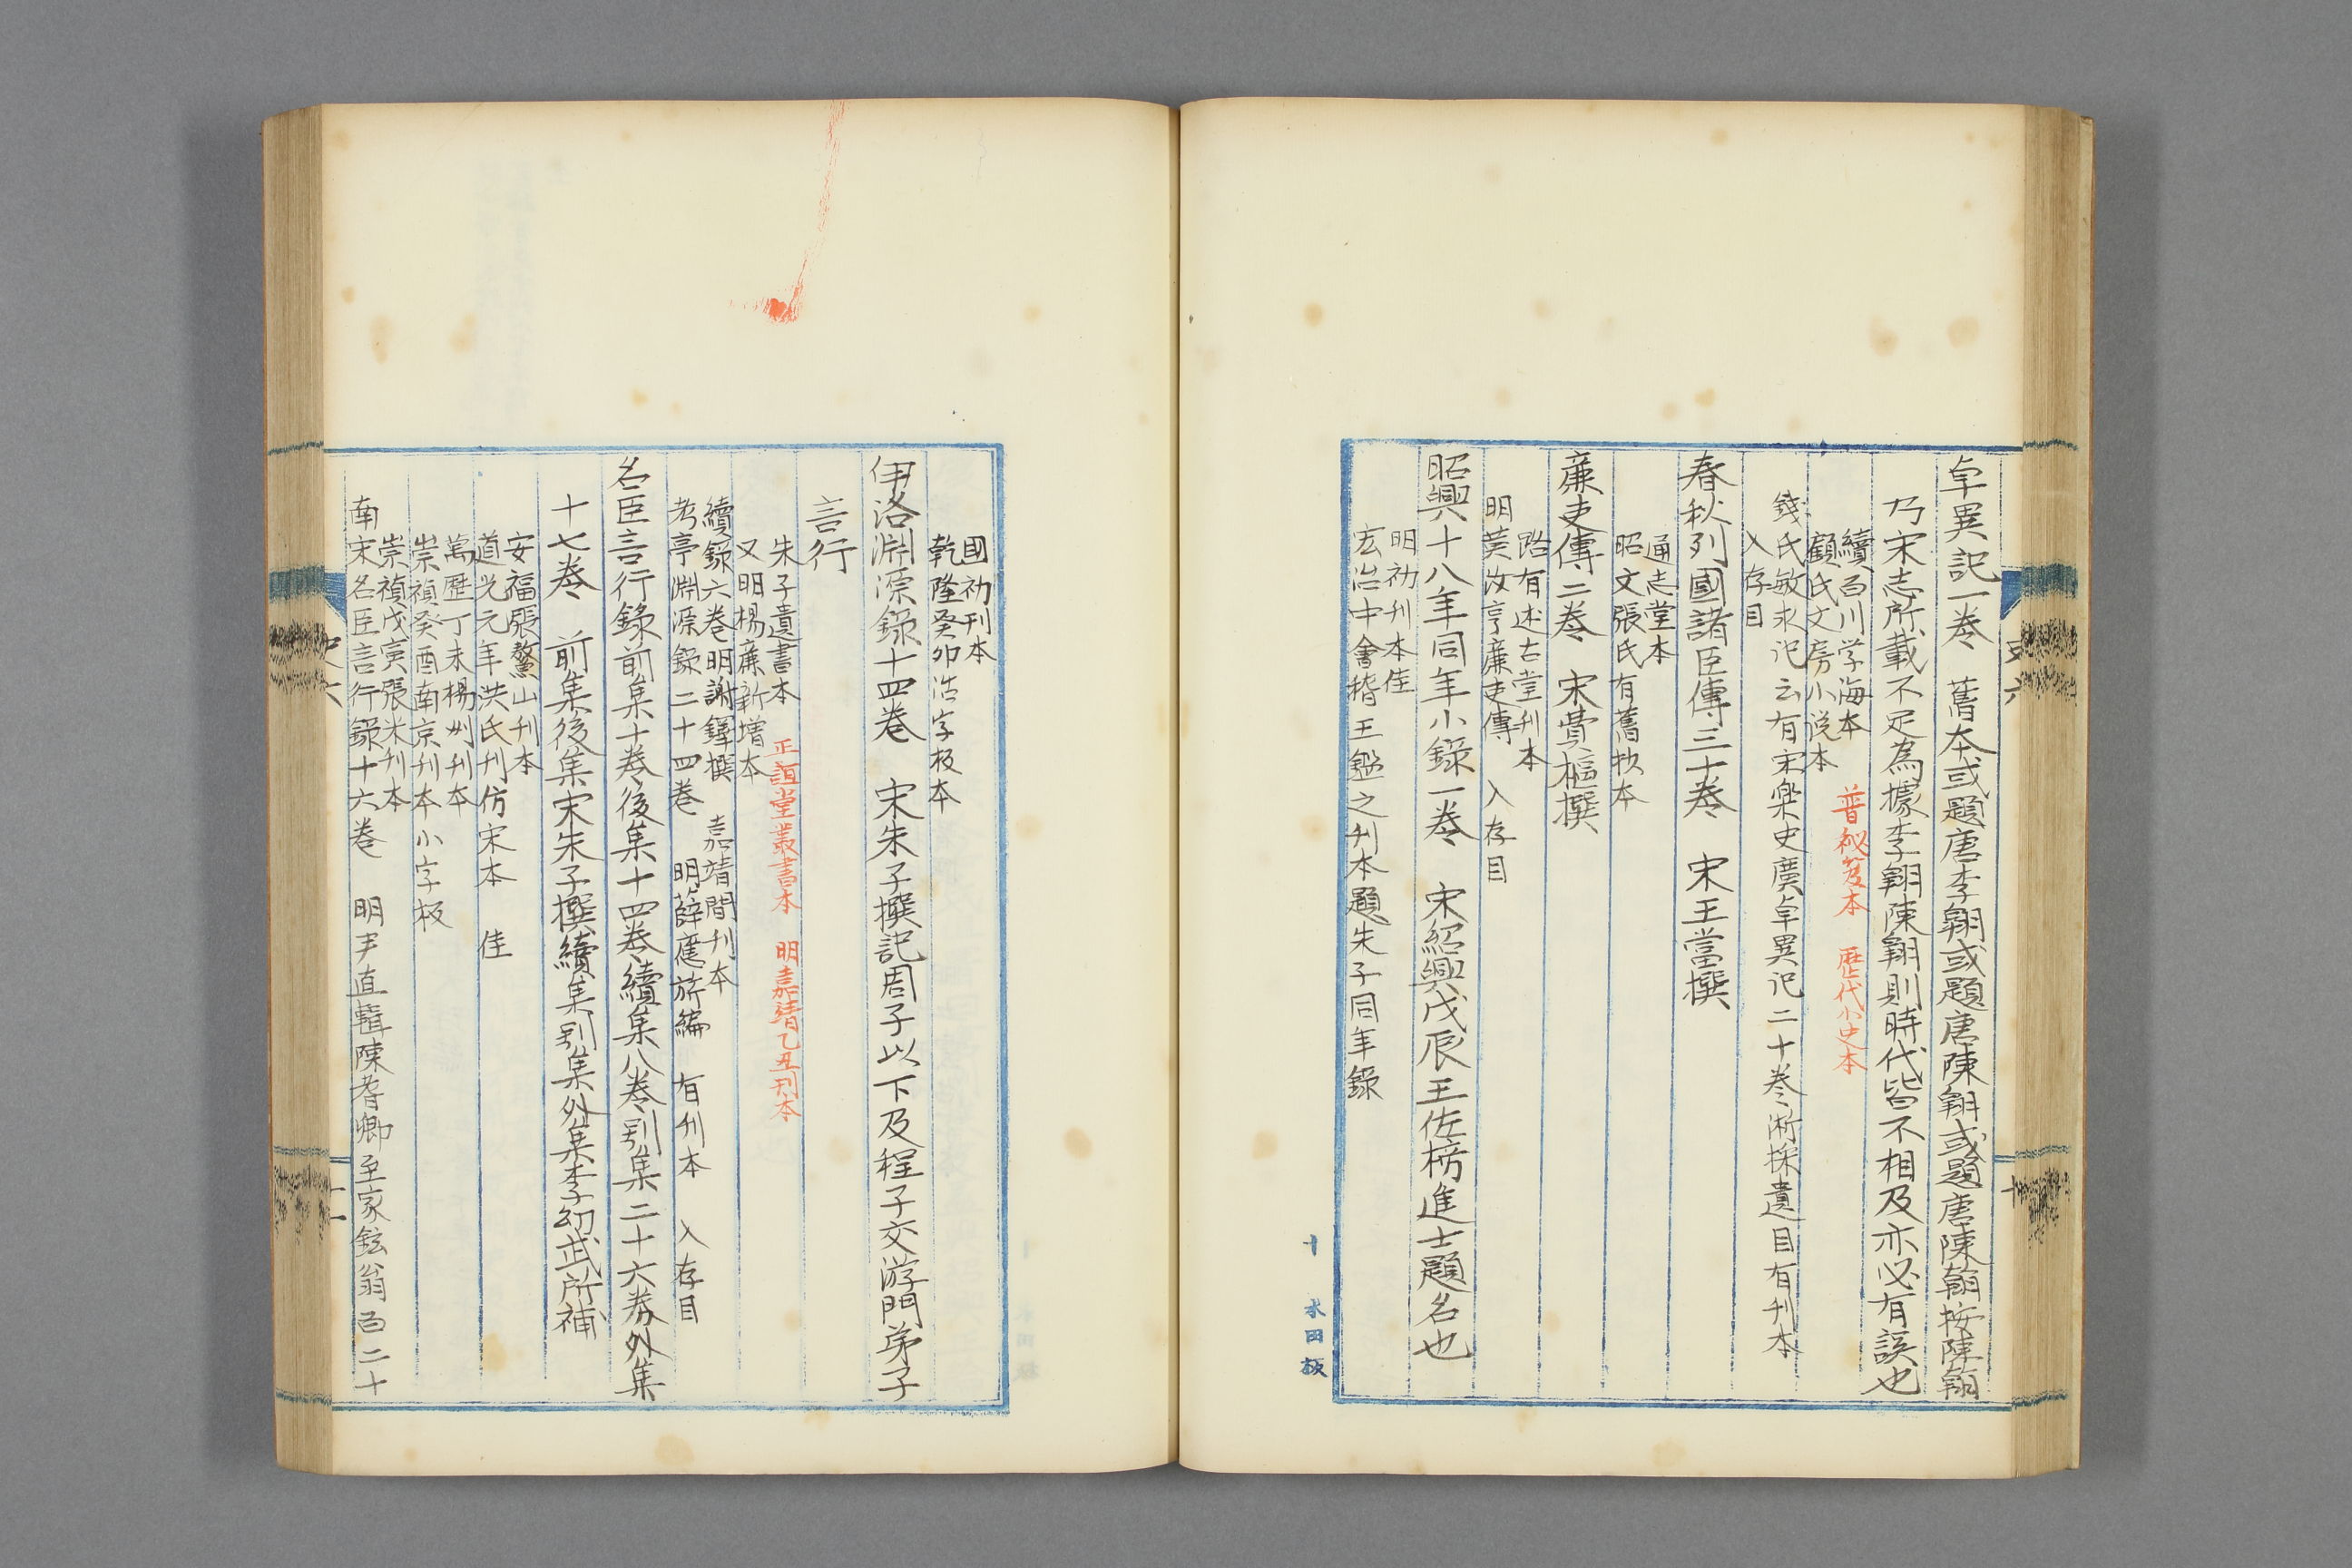 卓異記一卷　舊本或題唐李翱或題唐陳翱或題唐陳翰按陳翱
乃宋志所載不足為據李翱陳翱則時代皆不相及亦必有誤也
續百川学海本　普秘笈本　歷代小史本
顧氏文房小說本
錢氏敏求記云有宋樂史廣卓異記二十卷淅採遺目有刊本
入存目
春秋列國諸臣傳三十卷　宋王當撰
通志堂本
昭文張氏有舊抄本
廉吏傳二卷　宋費樞撰
路有述古堂刊本
明黄汝亨廉吏傳　入存目
昭興十八年同年小錄一卷　宋紹興戊辰王佐榜進士題名也
明初刊本佳
宏治中會稽王鑑之刊本題朱子同年錄
史六
十
十　水田板
國初刊本
乾隆癸卯活字板本
伊洛淵源錄十四卷　宋朱子撰記周子以下及程子交游門弟子
言行
朱子遺書本　正誼堂叢書本　明嘉靖乙丑刊本
又明楊廉新增本
續錄六卷明謝鐸撰　嘉靖間刊本
考亭淵源錄二十四卷　明薛應旂編　有刊本　入存目
名臣言行錄前集十卷後集十四卷續集八卷別集二十六卷外集
十七卷　前集後集宋朱子撰續集別集外集李幼武所補
安福張鰲山刊本
道光元年洪氏刊仿宋本　佳
萬歷丁未楊州刊本
崇禎癸酉南京刊本小字板
崇禎戊寅張米刊本
南宋名臣言行錄十六卷　明尹直輯陳耆卿至家鉉翁百二十
史六
十一